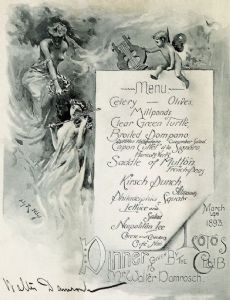 Menu
Celery – Olives.
Millponds
Clear Green Turtle
Broiled Pompano
Cucumber Salad
Capon Cutlet a la
Saddle of Mutton
French Peas
Kirsch Punch
Philadelphia Squabs
Lettuce
Salad
Neapolitan Ice
Cheese and
Café Noir
March
1893.
Dinner
given By The
Lotos
Club
to
Mr Walter Damrosch.
Walter Damrosch